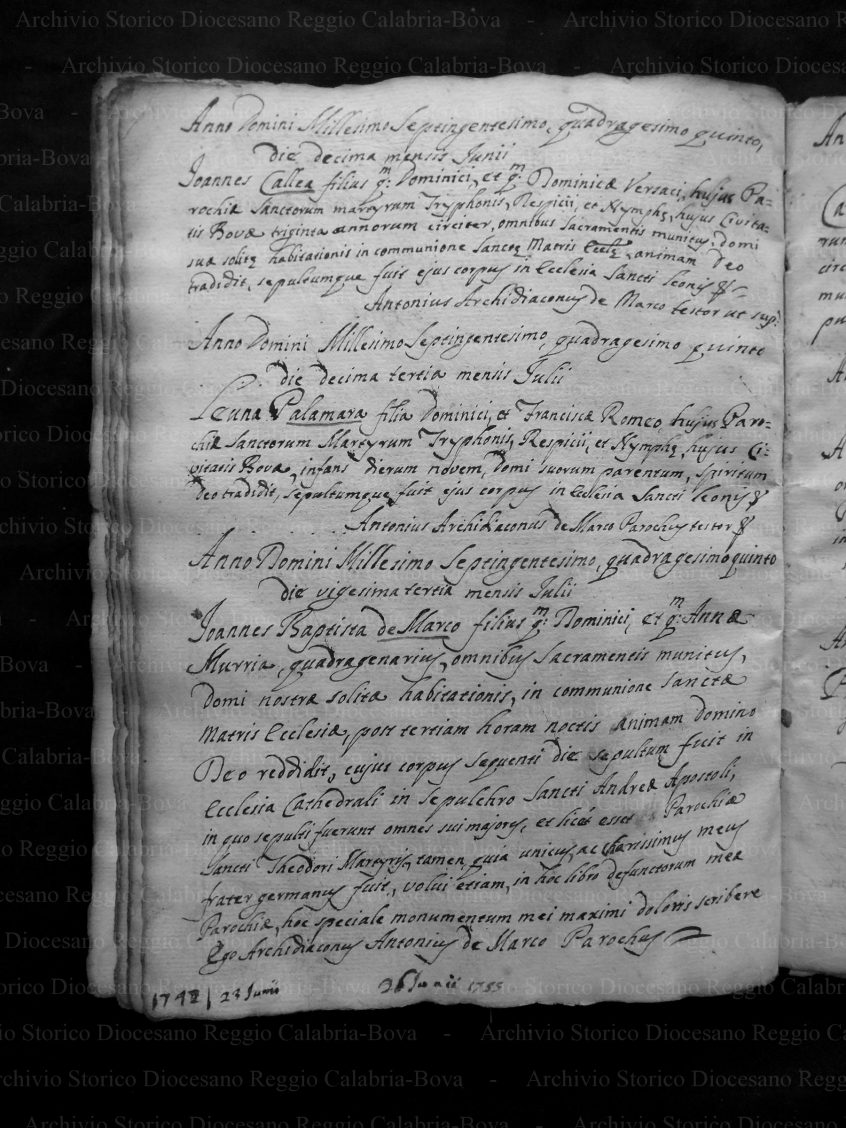 Anno Domini Millesimo Septingentesimo, quadragesimo quinto,
die decima mensis Junii
Joannes Callea filius qm: Dominici, et qm: Dominicæ Versaci, hujus Pa-
rochiæ Sanctorum martyrum Tryphonis, Respicii, et Nymphę, hujus Civita-
tis Bovæ triginta annorum circiter, omnibus Sacramentis munitus, domi
suæ solitę habitationis in communione Sanctę Matris Ecclę, animam Deo
tradidit, sepultumque fuit ejus corpus in Ecclesia Sancti Leonis &
Antonius Archidiaconus de Marco testor ut sup:
Anno Domini Millesimo Septingentesimo, quadragesimo quinto
die decima tertia mensis Julii
Leuna Palamara filia Dominici, et Franciscæ Romeo, hujus Paro-
chiæ Sanctorum Martyrum Tryphonis, Respicii, et Nymphę, hujus Ci-
vitatis Bovæ, infans dierum novem, domi suorum parentum, spiritum
Deo tradidit, sepultumque fuit ejus corpus in Ecclesia Sancti Leonis &
Antonius Archidiaconus de Marco Parochus testor &
Anno Domini Millesimo Septingentesimo, quadragesimo quinto
die vigesima tertia mensis Julii
Joannes Baptista de Marco filius qm: Dominici, et qm: Annæ
Murria, quadragenarius, omnibus Sacramentis munitus,
domi nostræ solitæ habitationis, in communione Sanctæ
Matris Ecclesiæ, post tertiam horam noctis animam Domino
Deo reddidit, cujus corpus sequenti die sepultum fuit in
Ecclesia Cathedrali in sepulchro Sancti Andreæ Apostoli,
in quo sepulti fuerunt omnes sui majores, et licèt esset Parochiæ
Sancti Theodori Martyris, tamen quia unicus, ac charissimus meus
frater germanus fuit, volui etiam, in hoc libro defunctorum meæ
Parochiæ, hoc speciale monumentum mei maximi doloris scribere
Ego Archidiaconus Antonius de Marco Parochus
1742 | 23 Junii 26 Junii 1755
Archivio Storico Diocesano Reggio Calabria-Bova